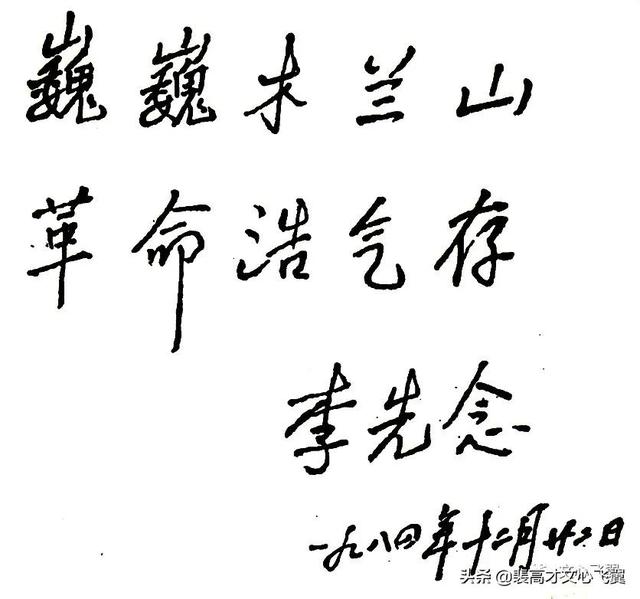 巍巍木兰山
革命浩气存
李先念
一九八四年十二月廿二日
头条 @裴高才文心飞翼